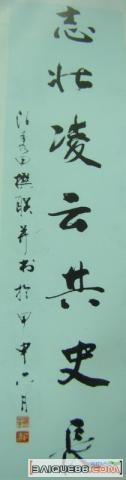 志壮凌云共史長
田撰联并书于甲申六月
BAIQUEBB.COM